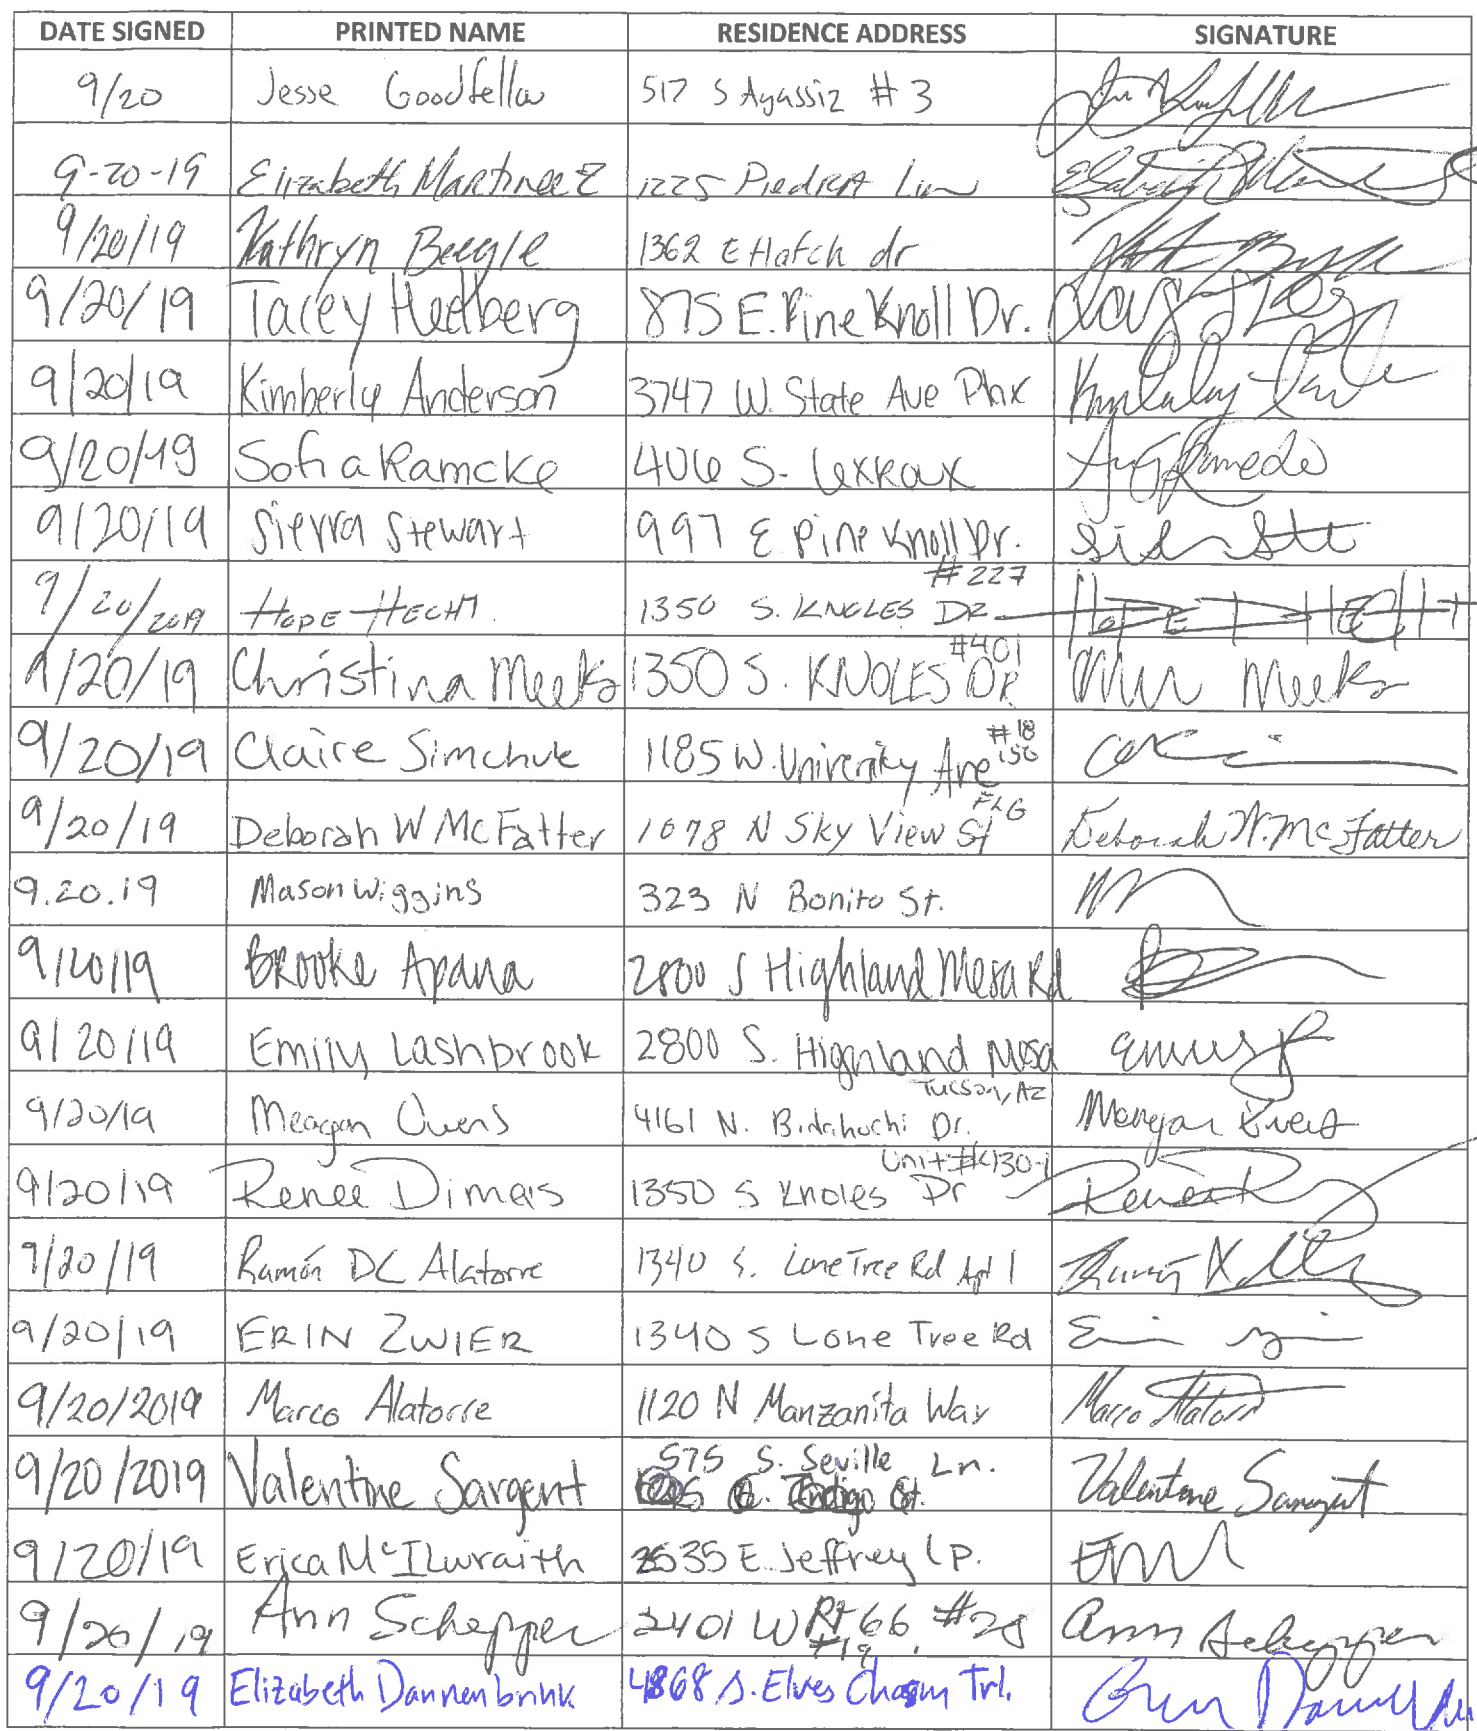 DATE SIGNED PRINTED NAME RESIDENCE ADDRESS SIGNATURE
9/20 Jesse Goodfellow 517 S Agassiz #3
9-20-19 Elizabeth Martinez 1225 Piedra
9/20/19 Kathryn Beegle 1362 E Hatch dr
9/20/19 Tacey Hedberg 875 E. Pine Knoll Dr.
9/20/19 Kimberly Anderson 3747 W. State Ave Phx
9/20/19 Sofia Ramcke 406 S.
9/20/19 Sierra Stewart 997 E Pine Knoll Dr.
#227
9/20/2019 HOPE HECHT 1350 S. KNOLES DR HOPE D HECHT
#401
9/20/19 Christina Meeks 1350 S. KNOLES DR Meeks
#18
9/20/19 Claire Simchuk 1185 W. University Ave 156
FLG
9/20/19 Deborah W McFatter 1078 N Sky View St Deborah W. McFatter
9.20.19 Mason Wiggins 323 N Bonito St.
9/20/19 Brooke Apana 2800 S Highland Mesa Rd
9/20/19 Emily Lashbrook 2800 S. Highland Mesa
Tucson, AZ
9/20/19 Meagan Owens 4161 N. Bidahochi Dr. Meagan Owens
Unit #430-1
9/20/19 Renee Dimas 1350 S Knoles Dr
9/20/19 Ramón DC Alatorre 1340 S. Lone Tree Rd Apt 1
9/20/19 ERIN ZWIER 1340 S Lone Tree Rd
9/20/2019 Marco Alatorre 1120 N Manzanita Way Marco Alatorre
575 S. Seville Ln.
9/20/2019 Valentine Sargent Valentine Sargent
9/20/19 Erica McILwraith 2535 E. Jeffrey Lp.
9/20/19 Ann Schepper 2401 W Rt 66, #28 Ann Schepper
#19
9/20/19 Elizabeth Dannenbrink 4868 S. Elves Chasm Trl.